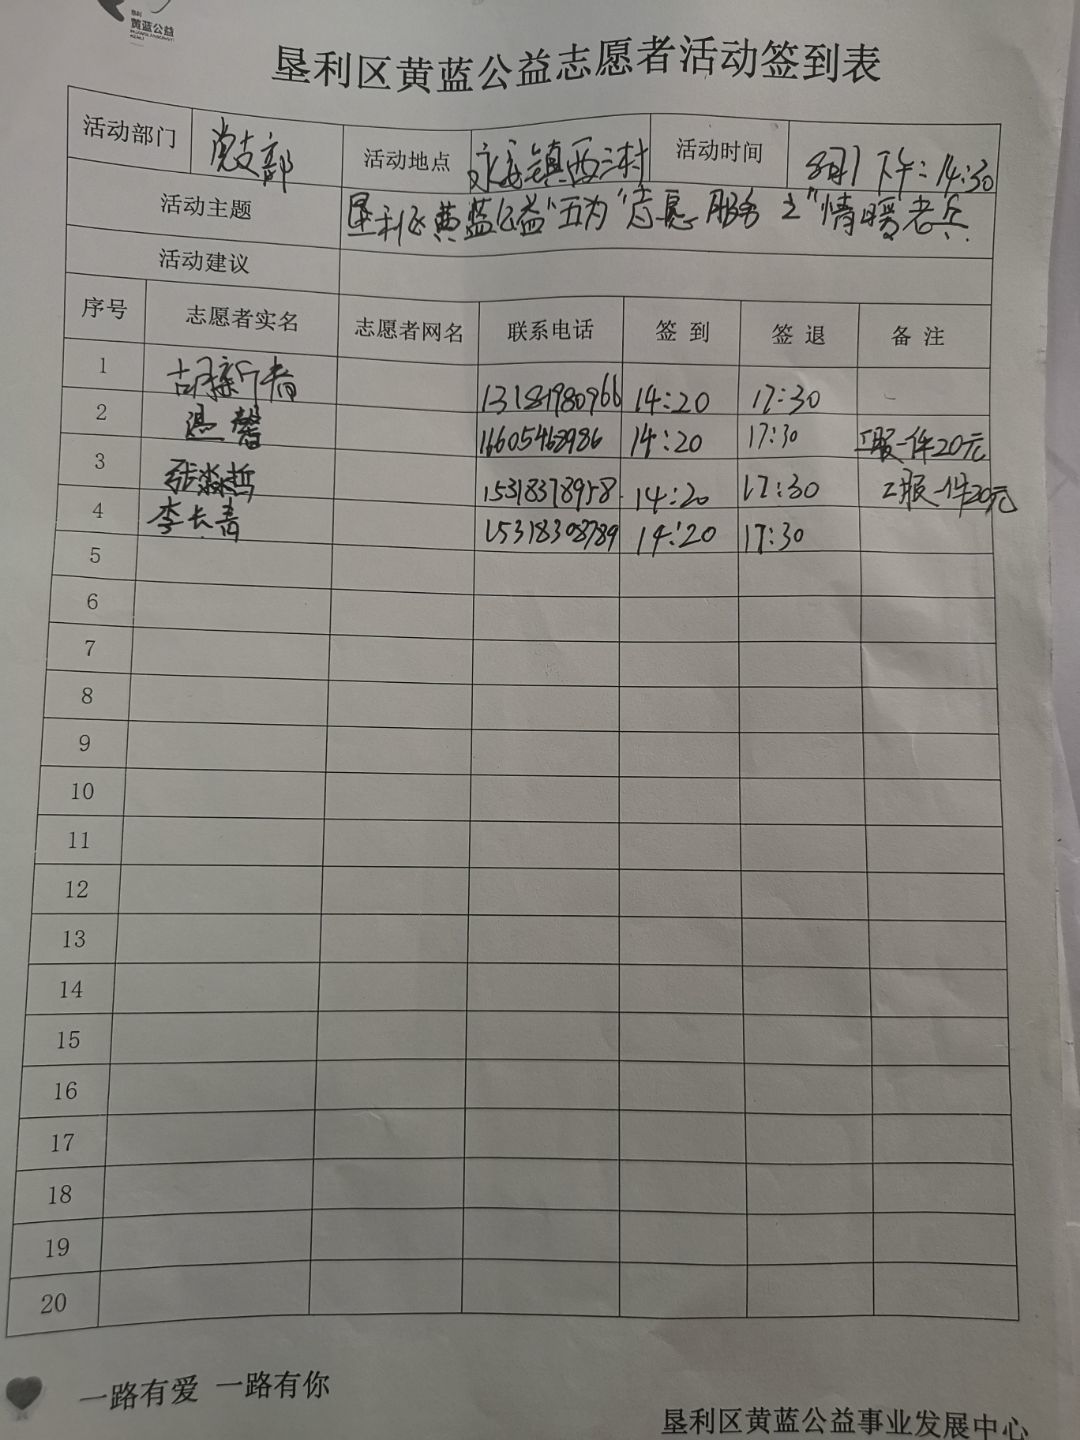 黄蓝公益
垦利区黄蓝公益志愿者活动签到表
活动部门 党支部 活动地点 永安镇西三村 活动时间 8月1下午:14:30
活动主题 垦利区黄蓝公益“五为”志愿服务之“情暖老兵
活动建议
序号 志愿者实名 志愿者网名 联系电话 签到 签退 备注
1 胡新春 13181980966 14:20 17:30
2 温馨 16605468986 14:20 17:30 工服一件20元
3 张淼哲 15318378958 14:20 17:30 工服一件20元
4 李长青 15318308789 14:20 17:30
5
6
7
8
9
10
11
12
13
14
15
16
17
18
19
20
一路有爱 一路有你
垦利区黄蓝公益事业发展中心